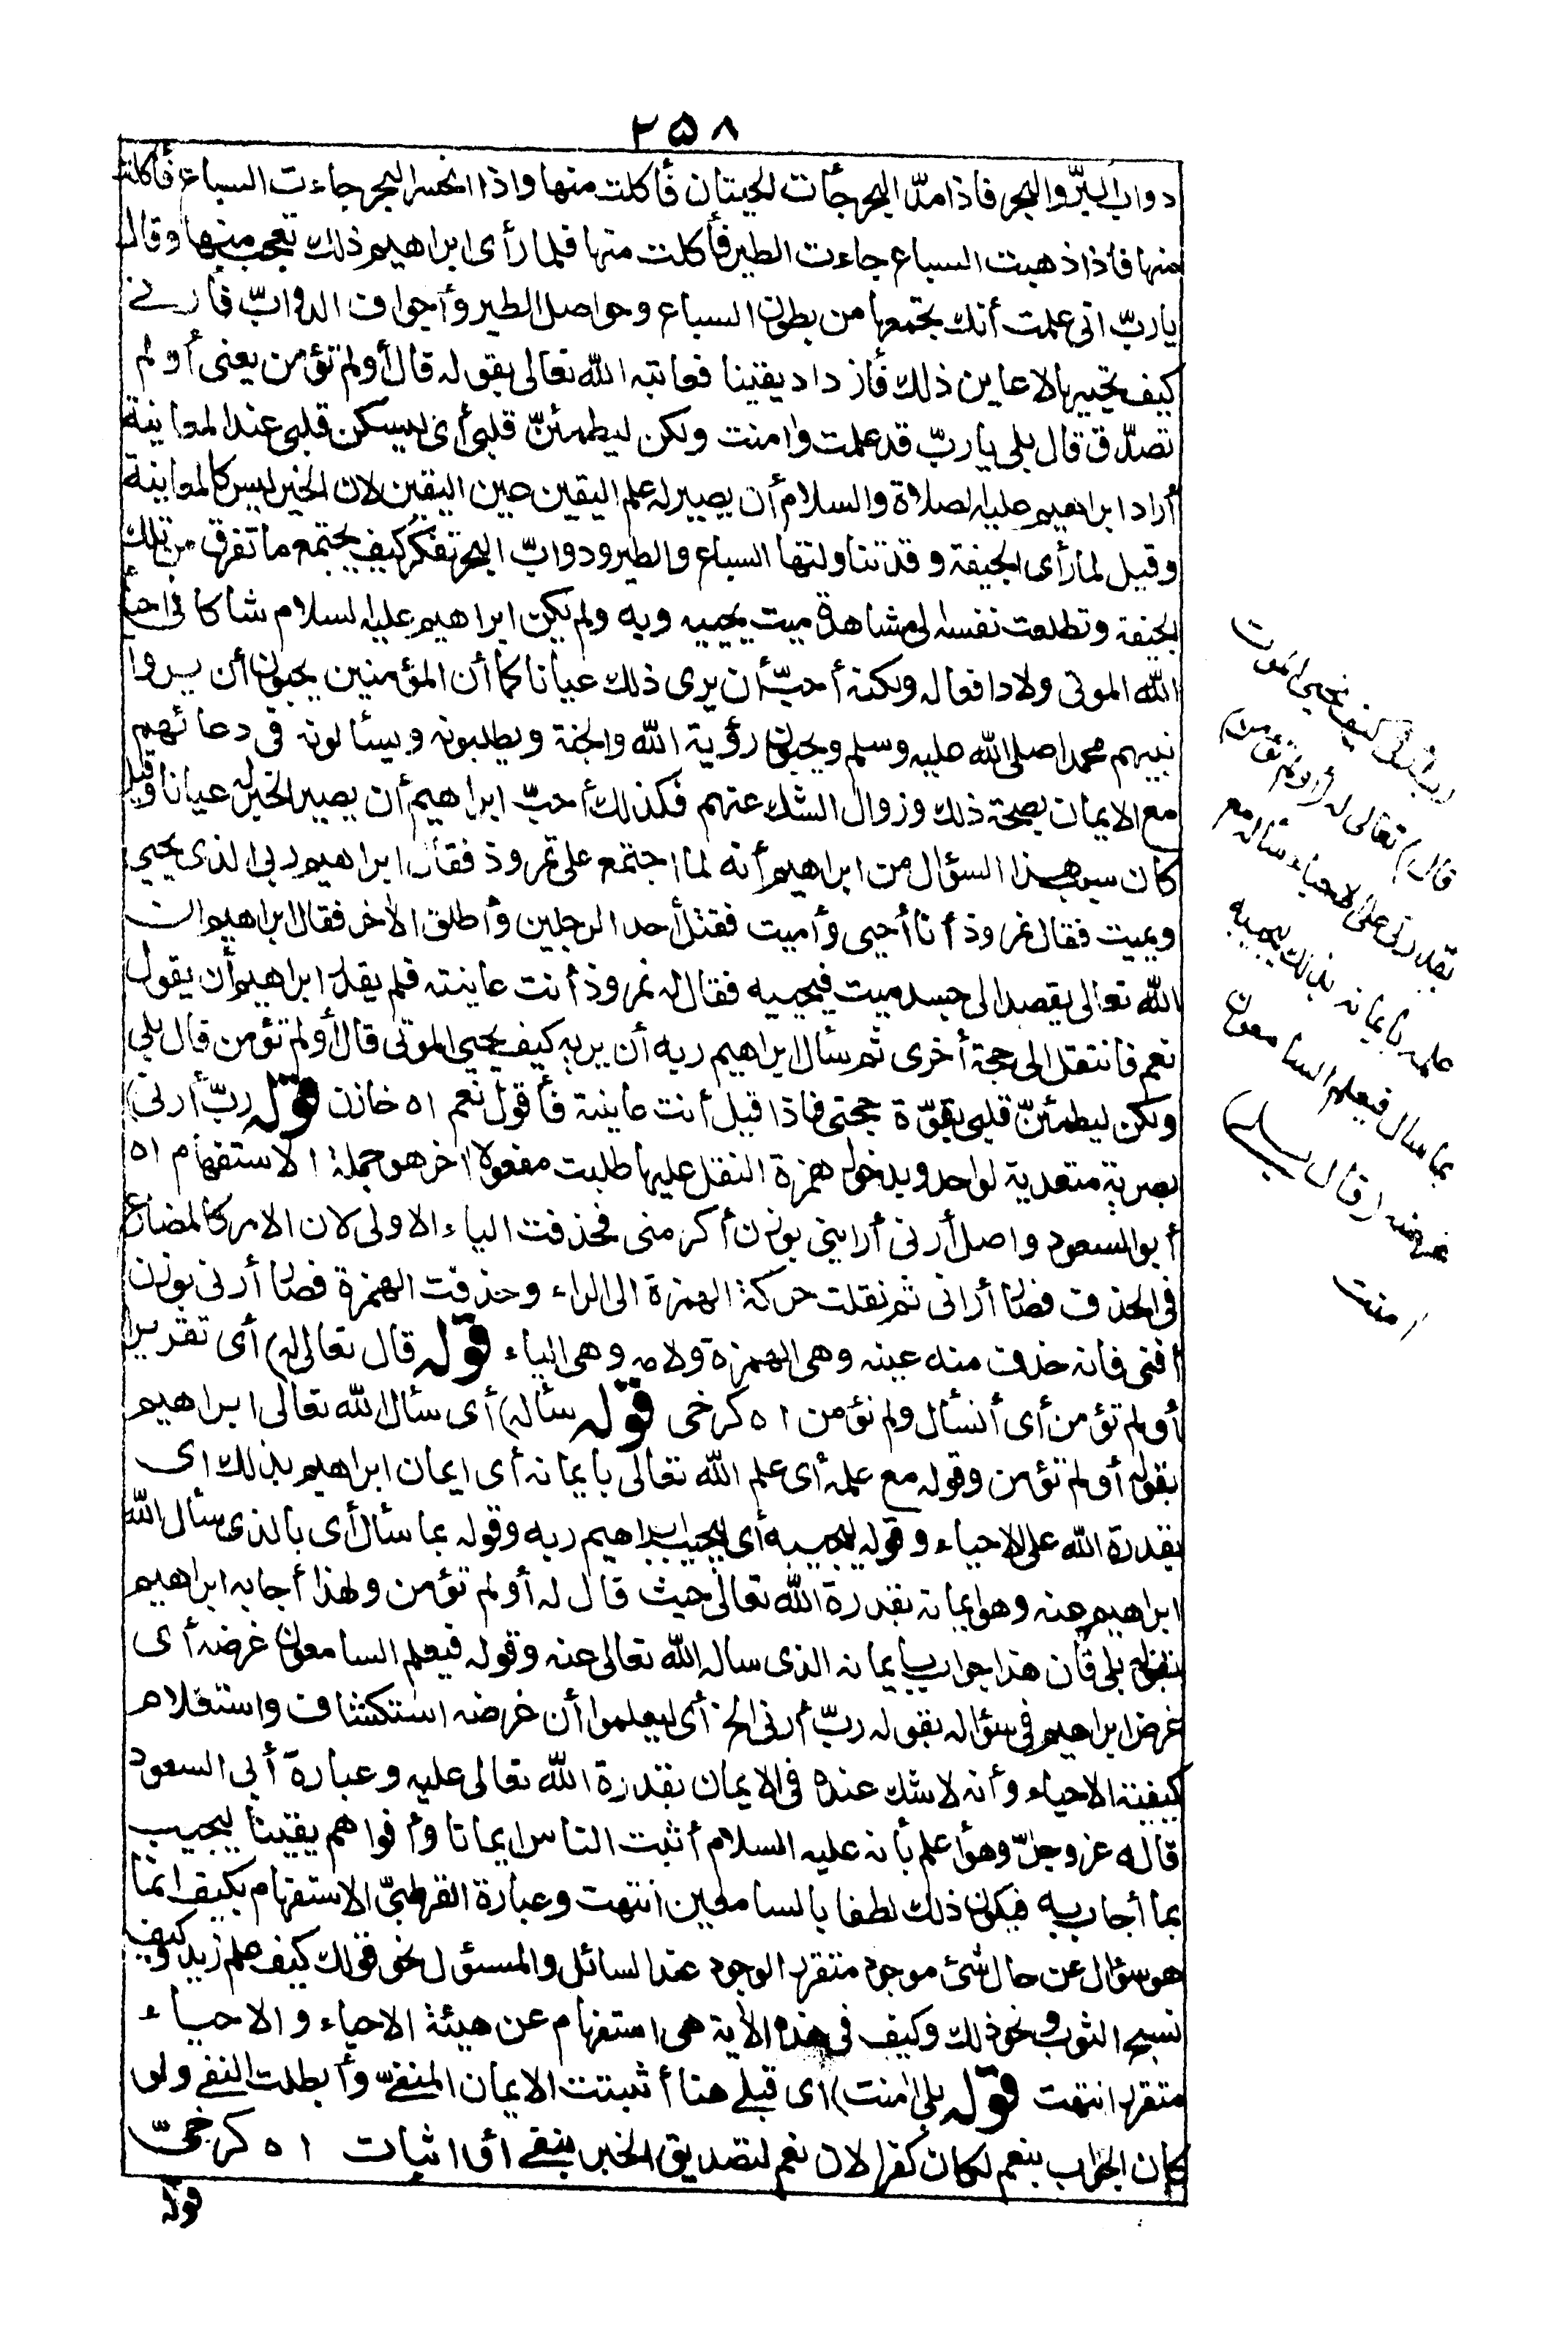 ٢٥٨
دواب البرّ والبحر فاذا مدّ البحر جأت الحيتان فأكلت منها واذا انحسر البحر جاءت السباع فأكلت
منها فاذا ذهبت السباع جاءت الطير فأكلت منها فلما رأى ابراهيم ذلك تعجب منها وقال
يا ربّ انى علمت أنك تجمعها من بطون السباع وحواصل الطير وأجواف الدوابّ فأرنى
كيف تحييها لاعاين ذلك فأزداد يقينا فعاتبه الله تعالى بقوله قال أولم تؤمن يعنى أولم
تصدّق قال بلى يا ربّ قد علمت وامنت ولكن ليطمئنّ قلبى أى ليسكن قلبى عند المعاينة
أراد ابراهيم عليه الصلاة والسلام أن يصير له علم اليقين عين اليقين لان الخبر ليس كالمعاينة
وقيل لما رأى الجيفة وقد تناولتها السباع والطير ودوابّ البحر تفكر كيف يجتمع ما تفرق من تلك
الجيفة وتطلعت نفسه الى مشاهدة ميت يحييه ربه ولم يكن ابراهيم عليه السلام شاكا فى احيأ
الله الموتى ولا دافعا له ولكنه أحبّ أن يرى ذلك عيانا كما أن المؤمنين يحبون أن يروا
نبيهم محمدا صلى الله عليه وسلم ويحبون رؤية الله والجنة ويطلبونه ويسألونه فى دعائهم
مع الايمان بصحة ذلك وزوال الشك عنهم فكذلك أحبّ ابراهيم أن يصير الخبر له عيانا وقيل
كان سبب هذا السؤال من ابراهيم أنه لما اجتمع على نمروذ فقال ابراهيم ربى الذى يحيى
ويميت فقال نمروذ أنا أحيى وأميت فقتل أحد الرجلين وأطلق الاخر فقال ابراهيم ان
الله تعالى يقصد الى جسد ميت فيحييه فقال له نمروذ أنت عاينته فلم يقدر ابراهيم أن يقول
نعم فانتقل الى حجة أخرى ثم سأل ابراهيم ربه أن يريه كيف يحيى الموتى قال أولم تؤمن قال بلى
ولكن ليطمئنّ قلبى بقوّة حجتى فاذا قيل أنت عاينته فأقول نعم اه خازن قوله ربّ أرنى)
بصرية متعدية لواحد وبدخول همزة النقل عليها طلبت مفعولا اخر هو جملة الاستفهام اه
أبو السعود واصل أرنى أرايني بوزن أكرمنى فحذفت الياء الاولى لان الامر كالمضارع
فى الحذف فصار أرانى ثم نقلت حركة الهمزة الى الراء وحذفت الهمزة فصار أرنى بوزن
أفنى فانه حذف منه عينه وهى الهمزة ولامه وهى الياء قوله قال تعالى له) أى تقريرا
أولم تؤمن أى أتسأل ولم تؤمن اه كرخى قوله سأله) أى سأل الله تعالى ابراهيم
بقوله أولم تؤمن وقوله مع علمه أى علم الله تعالى بايمانه أى ايمان ابراهيم بذلك اى
بقدرة الله على الاحياء وقوله ليجيبه أى ليجيب ابراهيم ربه وقوله بما سأل أى بالذى سأل الله
ابراهيم عنه وهو ايمانه بقدرة الله تعالى حيث قال له أولم تؤمن ولهذا أجابه ابراهيم
بقوله بلى فان هذا جواب بايمانه الذى ساله الله تعالى عنه وقوله فيعلم السامعون غرضه أى
غرض ابراهيم فى سؤاله بقوله ربّ أرنى الخ أى ليعلموا أن غرضه استكشاف واستعلام
كيفية الاحياء وأنه لا شك عنده فى الايمان بقدرة الله تعالى عليه وعبارة أبى السعود
قاله عز وجلّ وهو أعلم بأنه عليه السلام أثبت الناس ايمانا وأقواهم يقينا ليجيب
بما أجاب به فيكون ذلك لطفا بالسامعين انتهت وعبارة القرطبىّ الاستفهام بكيف انما
هو سؤال عن حال شئ موجود متقرر الوجود عند السائل والمسؤل نحو قولك كيف علم زيد وكيف
نسج الثوب ونحو ذلك وكيف فى هذه الأية هى استفهام عن هيئة الاحياء والاحياء
متقرر انتهت قوله بلى امنت) أى قبلى هنا أثبتت الايمان المنفىّ وأبطلت النفى ولو
كان الجواب بنعم لكان كفرا لان نعم لتصديق الخبر بنفى أو اثبات اه كرخىّ
قوله
كيف تحيى الموتى
قال) تعالى له (أولم تؤمن)
بقدرتى على الاحياء سأله مع
علمه بايمانه بذلك ليجيبه
بما سأل فيعلم السامعون
غرضه (قال بلى)
امنت